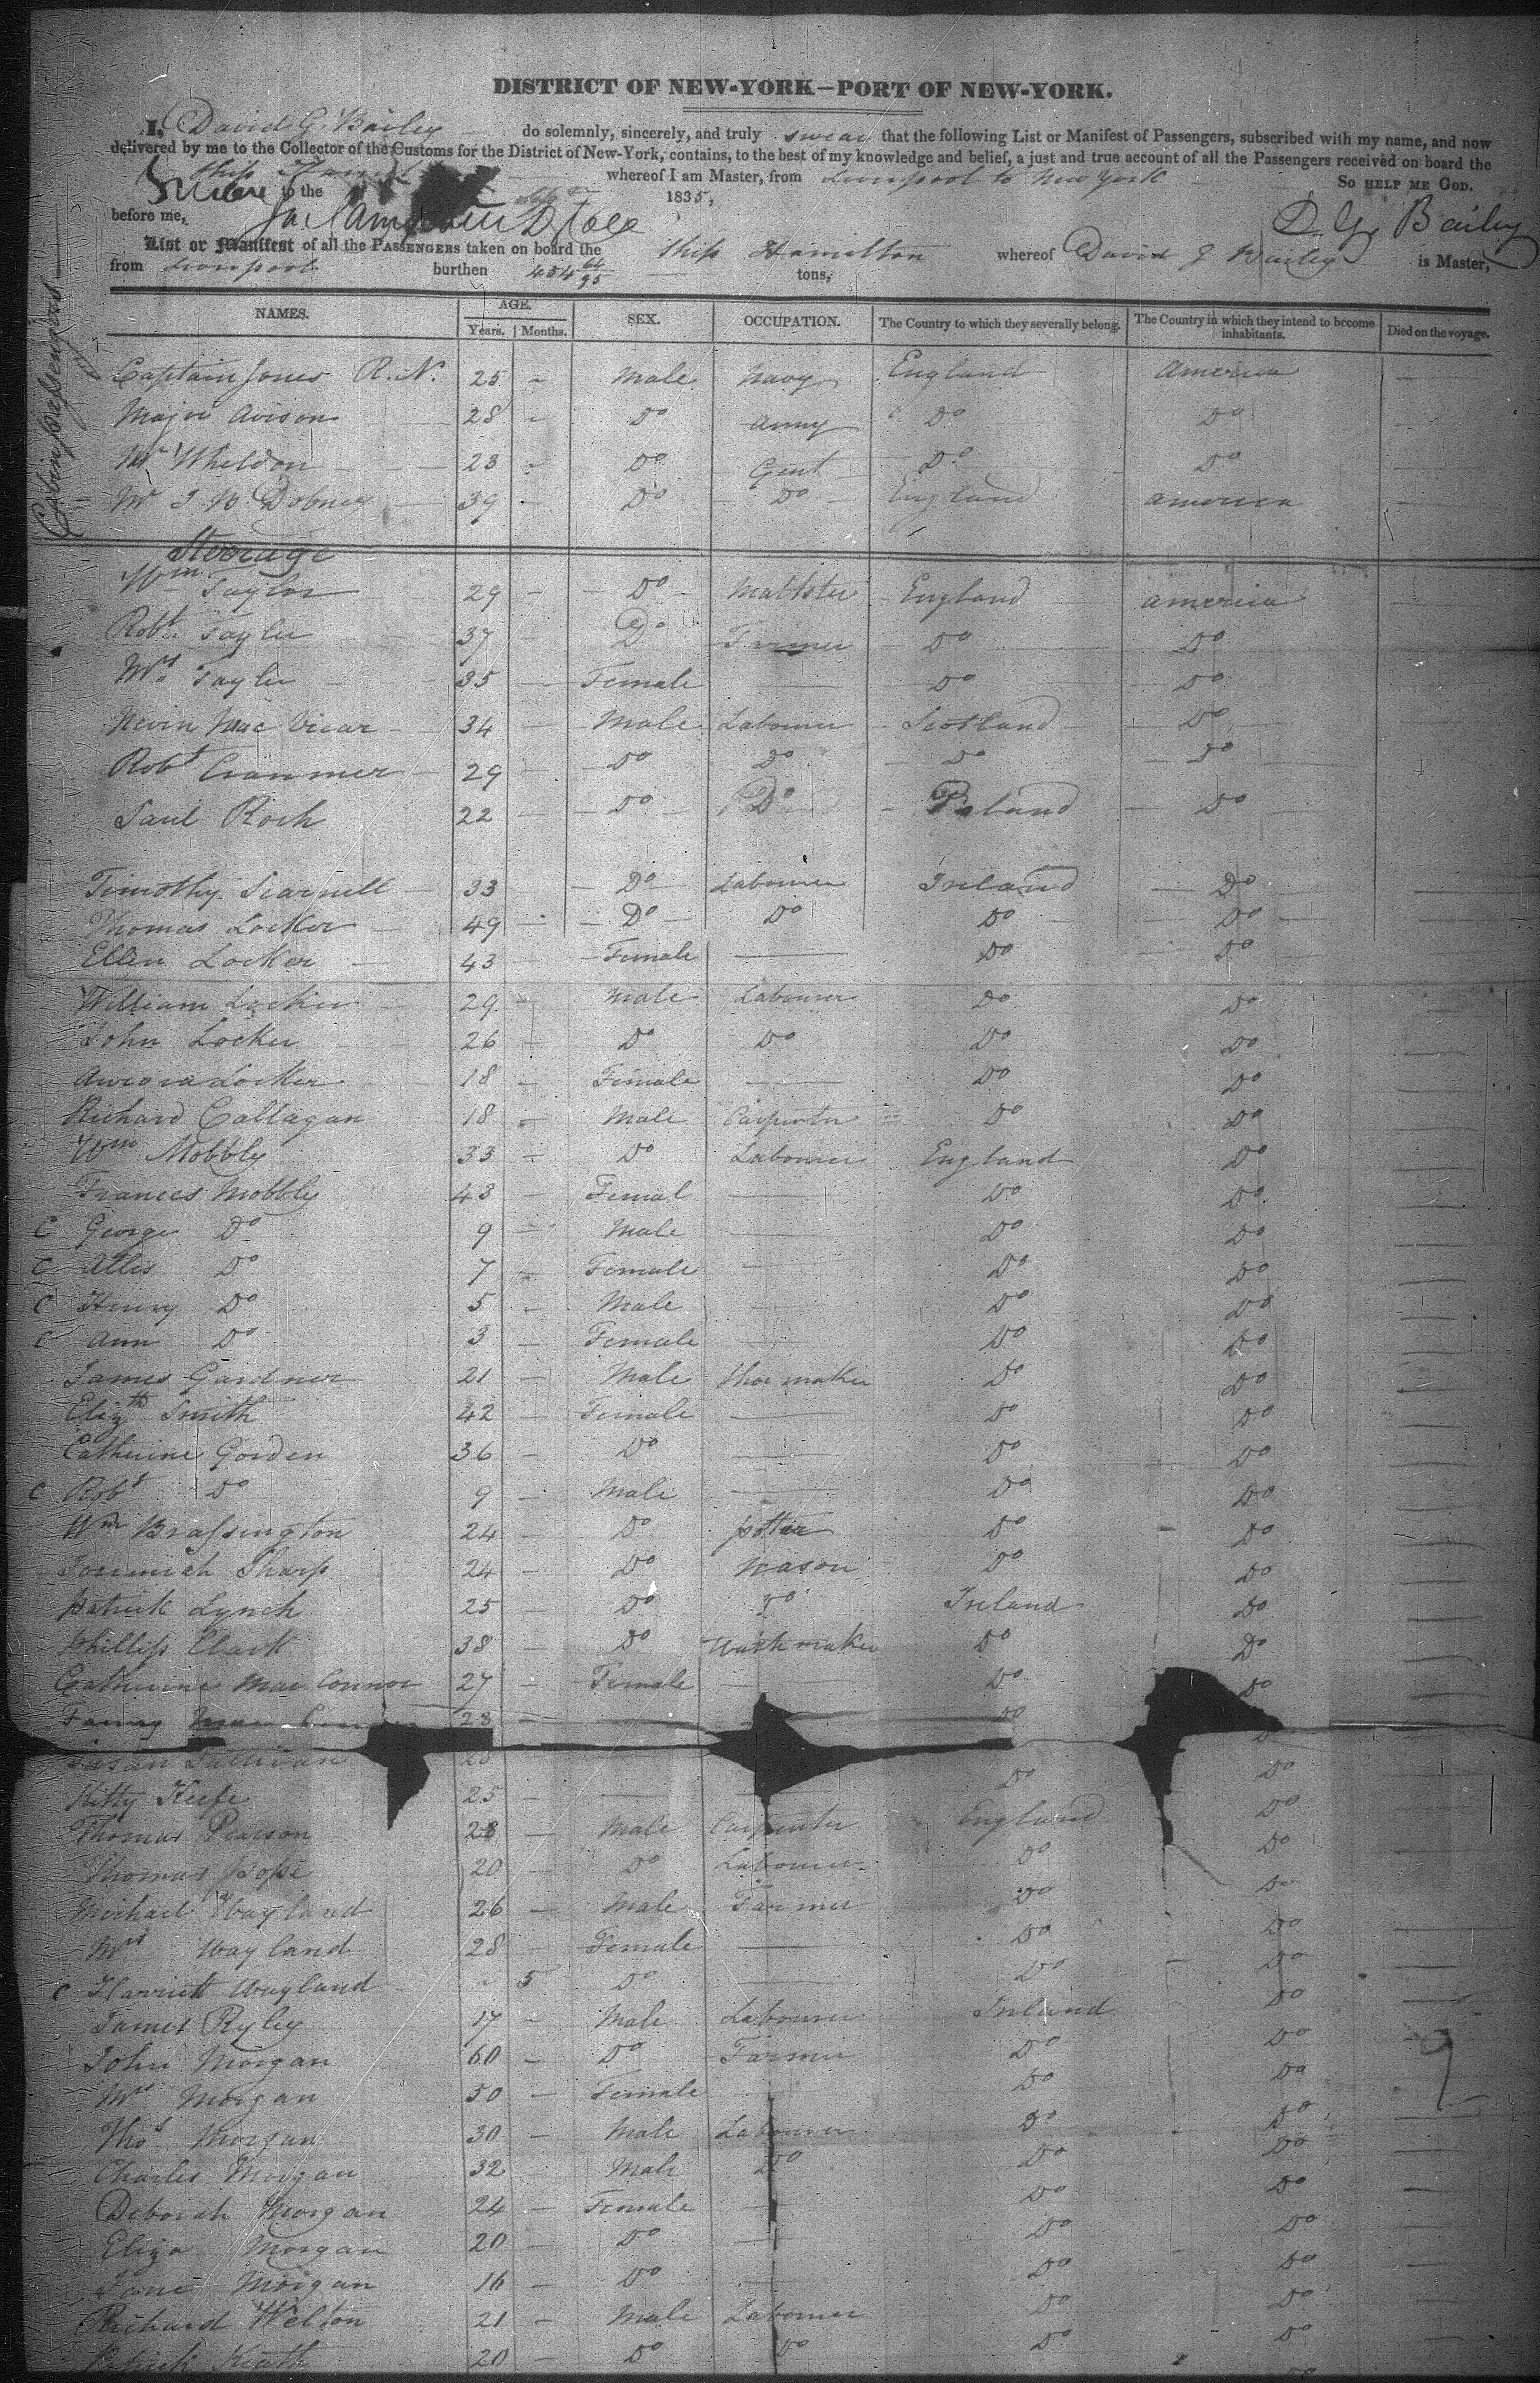 DISTRICT OF NEW-YORK—PORT OF NEW-YORK.
I, David G. Bailey do solemnly, sincerely, and truly swear that the following List or Manifest of Passengers, subscribed with my name, and now
delivered by me to the Collector of the Customs for the District of New-York, contains, to the best of my knowledge and belief, a just and true account of all the Passengers received on board the
Ship whereof I am Master, from Liverpool to New York So HELP ME GOD.
to the 1835,
before me, D. G. Bailey
List or Manifest of all the PASSENGERS taken on board the Ship Hamilton whereof David G Bailey is Master,
from Liverpool burthen 454 64/95 tons,
Cabin passengers
NAMES. AGE. SEX. OCCUPATION. The Country to which they severally belong. The Country in which they intend to become inhabitants. Died on the voyage.
Years. Months.
Captain Jones R.N. 25 - Male Navy England America
Major Avison 28 - Do Army Do Do
Mr Wheldon 23 - Do Gent Do Do
Mr J W Dobney 39 - Do Do England America
Steerage
Wm Taylor 29 - Do Maltster England America
Robt Tayler 37 Do Farmer Do Do
Mrs Tayler 35 Female Do Do
Nevin Mac Vicar 34 Male Labourer Scotland Do
Robt Cranmer 29 Do Do Do Do
Saul Roch 22 Do Do Poland Do
Timothy Scannell 33 Do Labourer Ireland Do
Thomas Locker 49 - Do Do Do Do
Ellen Locker 43 Female Do Do
William Locker 29 - Male Labourer Do Do
John Locker 26 - Do Do Do Do
Aurora Locker 18 - Female Do Do
Richard Callagan 18 - Male Carpenter Do Do
Wm Mobbly 33 - Do Labourer England Do
Frances Mobbly 43 - Femal Do Do
C George Do 9 - Male Do Do
C Allis Do 7 - Female Do Do
C Henry Do 5 - Male Do Do
C Ann Do 3 - Female Do Do
James Gardner 21 - Male Shoe maker Do Do
Elizth Smith 42 - Female Do Do
Catherine Gorden 36 - Do Do Do
C Robt Do 9 - Male Do Do
Wm Brassington 24 - Do potter Do Do
Jeremiah Sharp 24 - Do Mason Do Do
Patrick Lynch 25 - Do Do Ireland Do
Phillip Clark 38 - Do Watch maker Do Do
Catherine Mac Connor 27 - Female Do Do
Fanny Mac 23 - Do Do
Susan Sullivan Do
Kitty Keefe 25 - Do Do
Thomas Pearson 28 - Male Carpenter England Do
Thomas Pope 20 - Do Labourer Do Do
Michael Wayland 26 - Male Farmer Do Do
Mrs Wayland 28 - Female Do Do
C Harriett Wayland 5 Do Do Do
James Ryley 17 - Male Labourer Ireland Do
John Morgan 60 - Do Farmer Do Do
Mrs Morgan 50 - Female Do Do
Thos Morgan 30 - Male Labourer Do Do
Charles Morgan 32 Male Do Do Do
Deborah Morgan 24 - Female Do Do
Eliza Morgan 20 - Do Do Do
Jane Morgan 16 - Do Do Do
Richard Welton 21 - Male Labourer Do Do
Patrick Keath 20 - Do Do Do Do